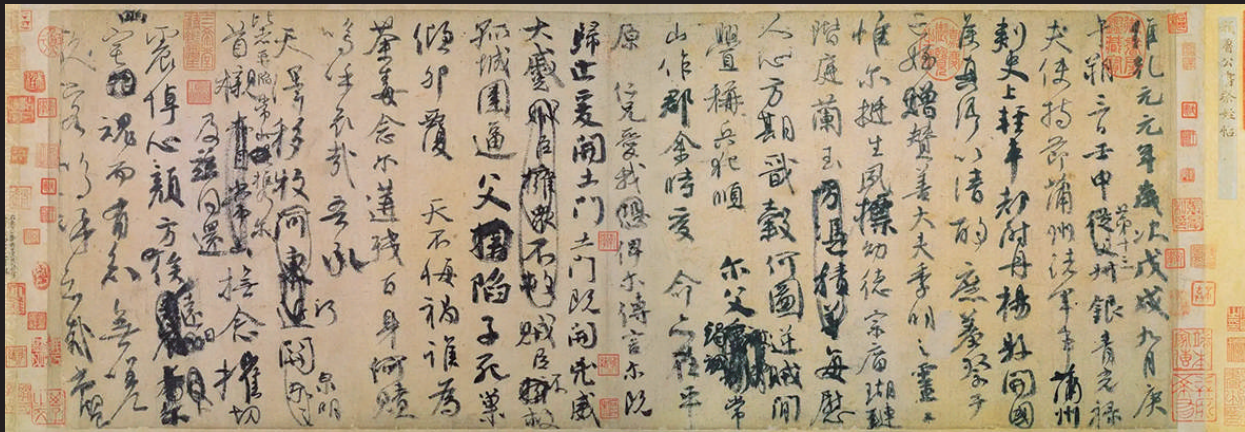 維乾元元年歲次戊戌九月庚
午朔三日壬申第十三叔銀青光祿
夫使持節蒲州諸軍事蒲州
刺史上輕車都尉丹楊縣開國
侯真卿以清酌庶羞祭于
亡姪贈贊善大夫季明之靈曰
惟爾挺生夙標幼德宗廟瑚璉
階庭蘭玉方憑積善每慰
人心方期戩穀何圖逆賊閒
釁稱兵犯順爾父竭誠常
山作郡余時受命亦在平
原仁兄愛我俾爾傳言爾既
歸止爰開土門土門既開凶威
大蹙賊臣擁眾不救
孤城圍逼父陷子死巢
傾卵覆天不悔禍誰為
荼毒念爾遘殘百身何贖
嗚呼哀哉吾承
天澤移牧河東近關泉明
比者再陷常山攜爾
首櫬及茲同還撫念摧切
震悼心顏方俟遠日
宅魂而有知無嗟
久客嗚呼哀哉尚饗